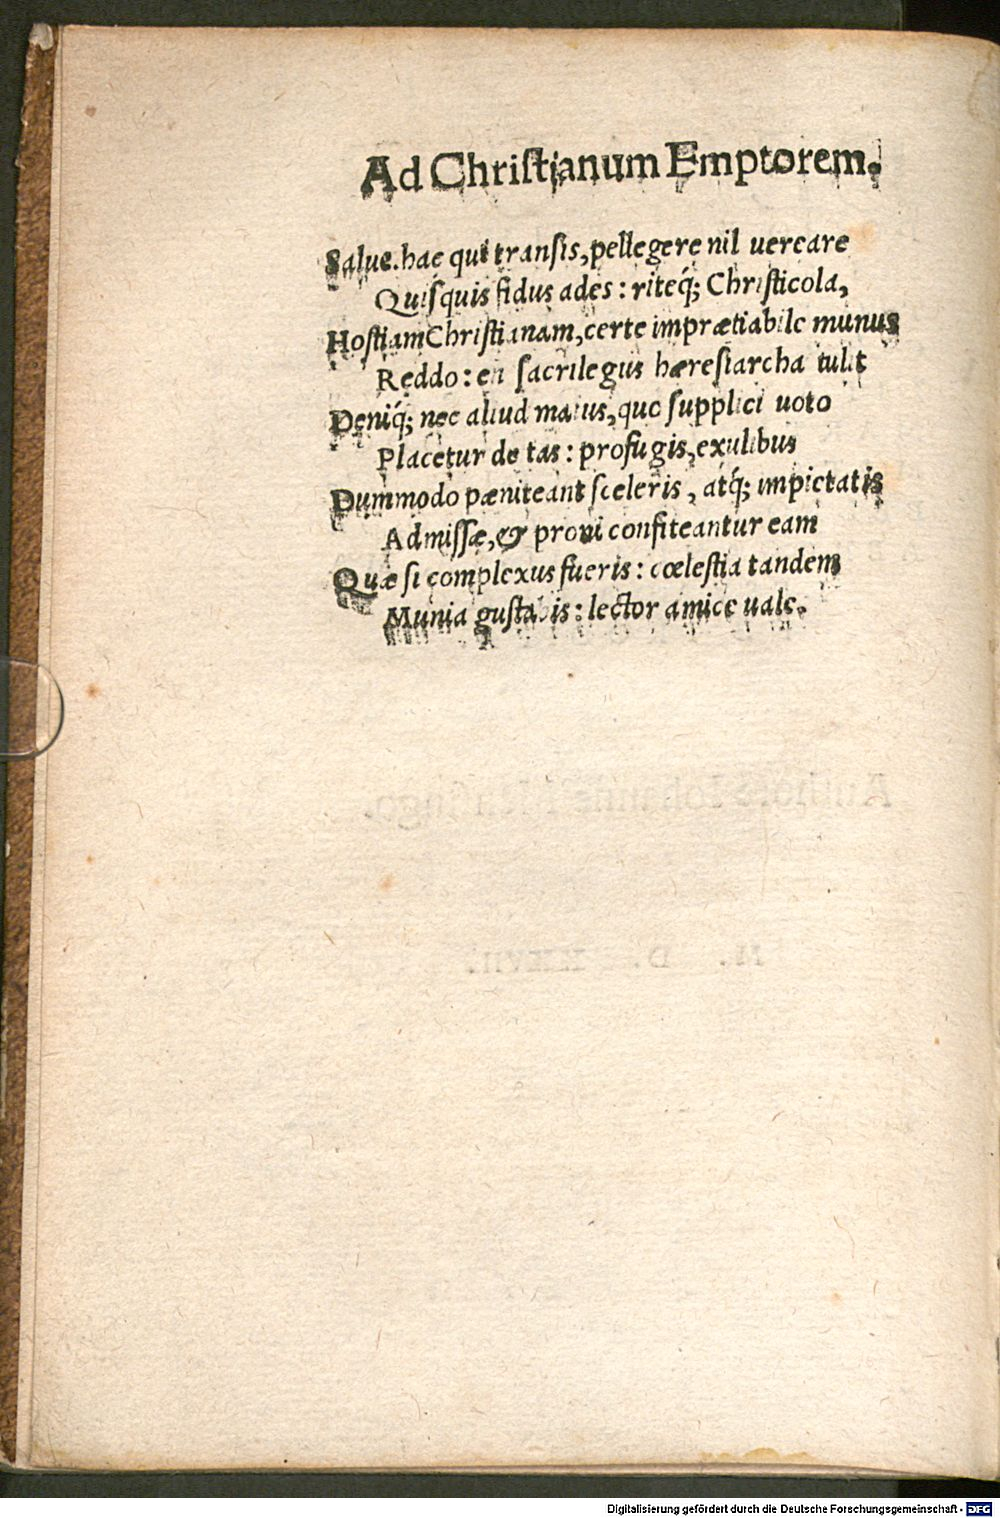 Ad Chriſtianum Emptorem.
Salue. hac qui tranſis, pellegere nil uereare
Quiſquis fidus ades: riteq́; Chriſticola,
Hoſtiam Chriſtianam, certe imprætiabile munus
Reddo: en ſacrilegus hæreſiarcha tulit
Deniq́; nec aliud maius, quo ſupplici uoto
Placetur deitas: profugis, exulibus
Dummodo pæniteant ſceleris, atq́; impietatis
Admiſſæ, & proni confiteantur eam
Quæ ſi complexus fueris: cœleſtia tandem
Munia guſtabis: lector amice uale.
Digitalisierung gefördert durch die Deutsche Forschungsgemeinschaft - DFG